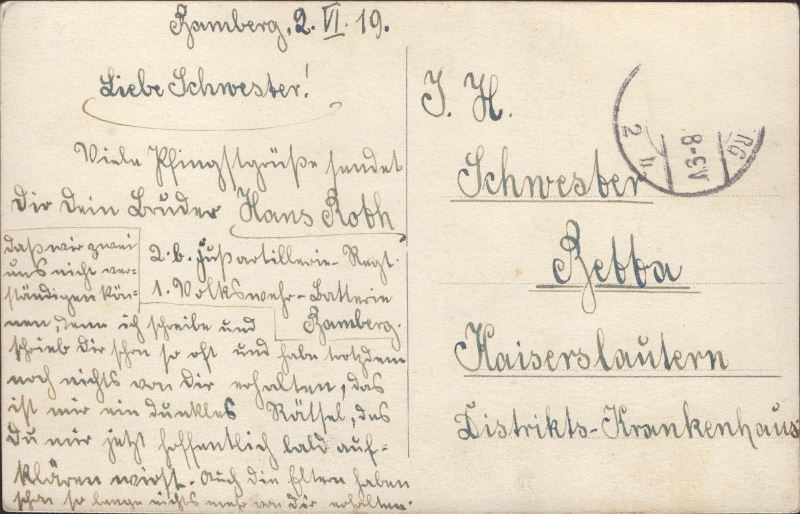 Bamberg, 2. VI. 19.
Liebe Schwester!
Viele Pfingstgrüße sendet
Dir Dein Bruder Hans Roth
2. b. Fußartillerie-Regt.
1. Volkswehr-Batterie
Bamberg.
daß wir zwei
uns nicht ver-
ständigen kön-
nen, denn ich schreibe und
schrieb Dir schon so oft und habe trotzdem
noch nichts von Dir erhalten, das
ist mir ein dunkles Rätsel, das
Du mir jetzt hoffentlich bald auf-
klären wirst. Auch die Eltern haben
schon so lange nichts mehr von Dir erhalten.
I. H.
Schwester
Betta
Kaiserslautern
Distrikts-Krankenhaus
RG
2
8-9V